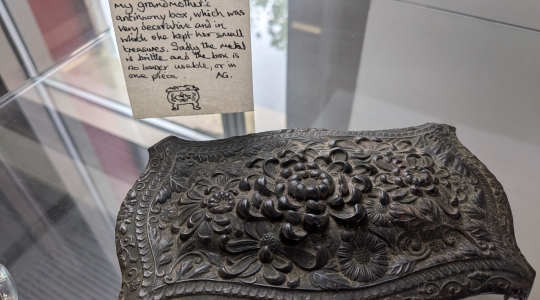 My grandmother's
antimony box, which was
very decorative and in
which she kept her small
treasures. Sadly the metal
is brittle and the box is
no longer usable, or in
one piece. AG.